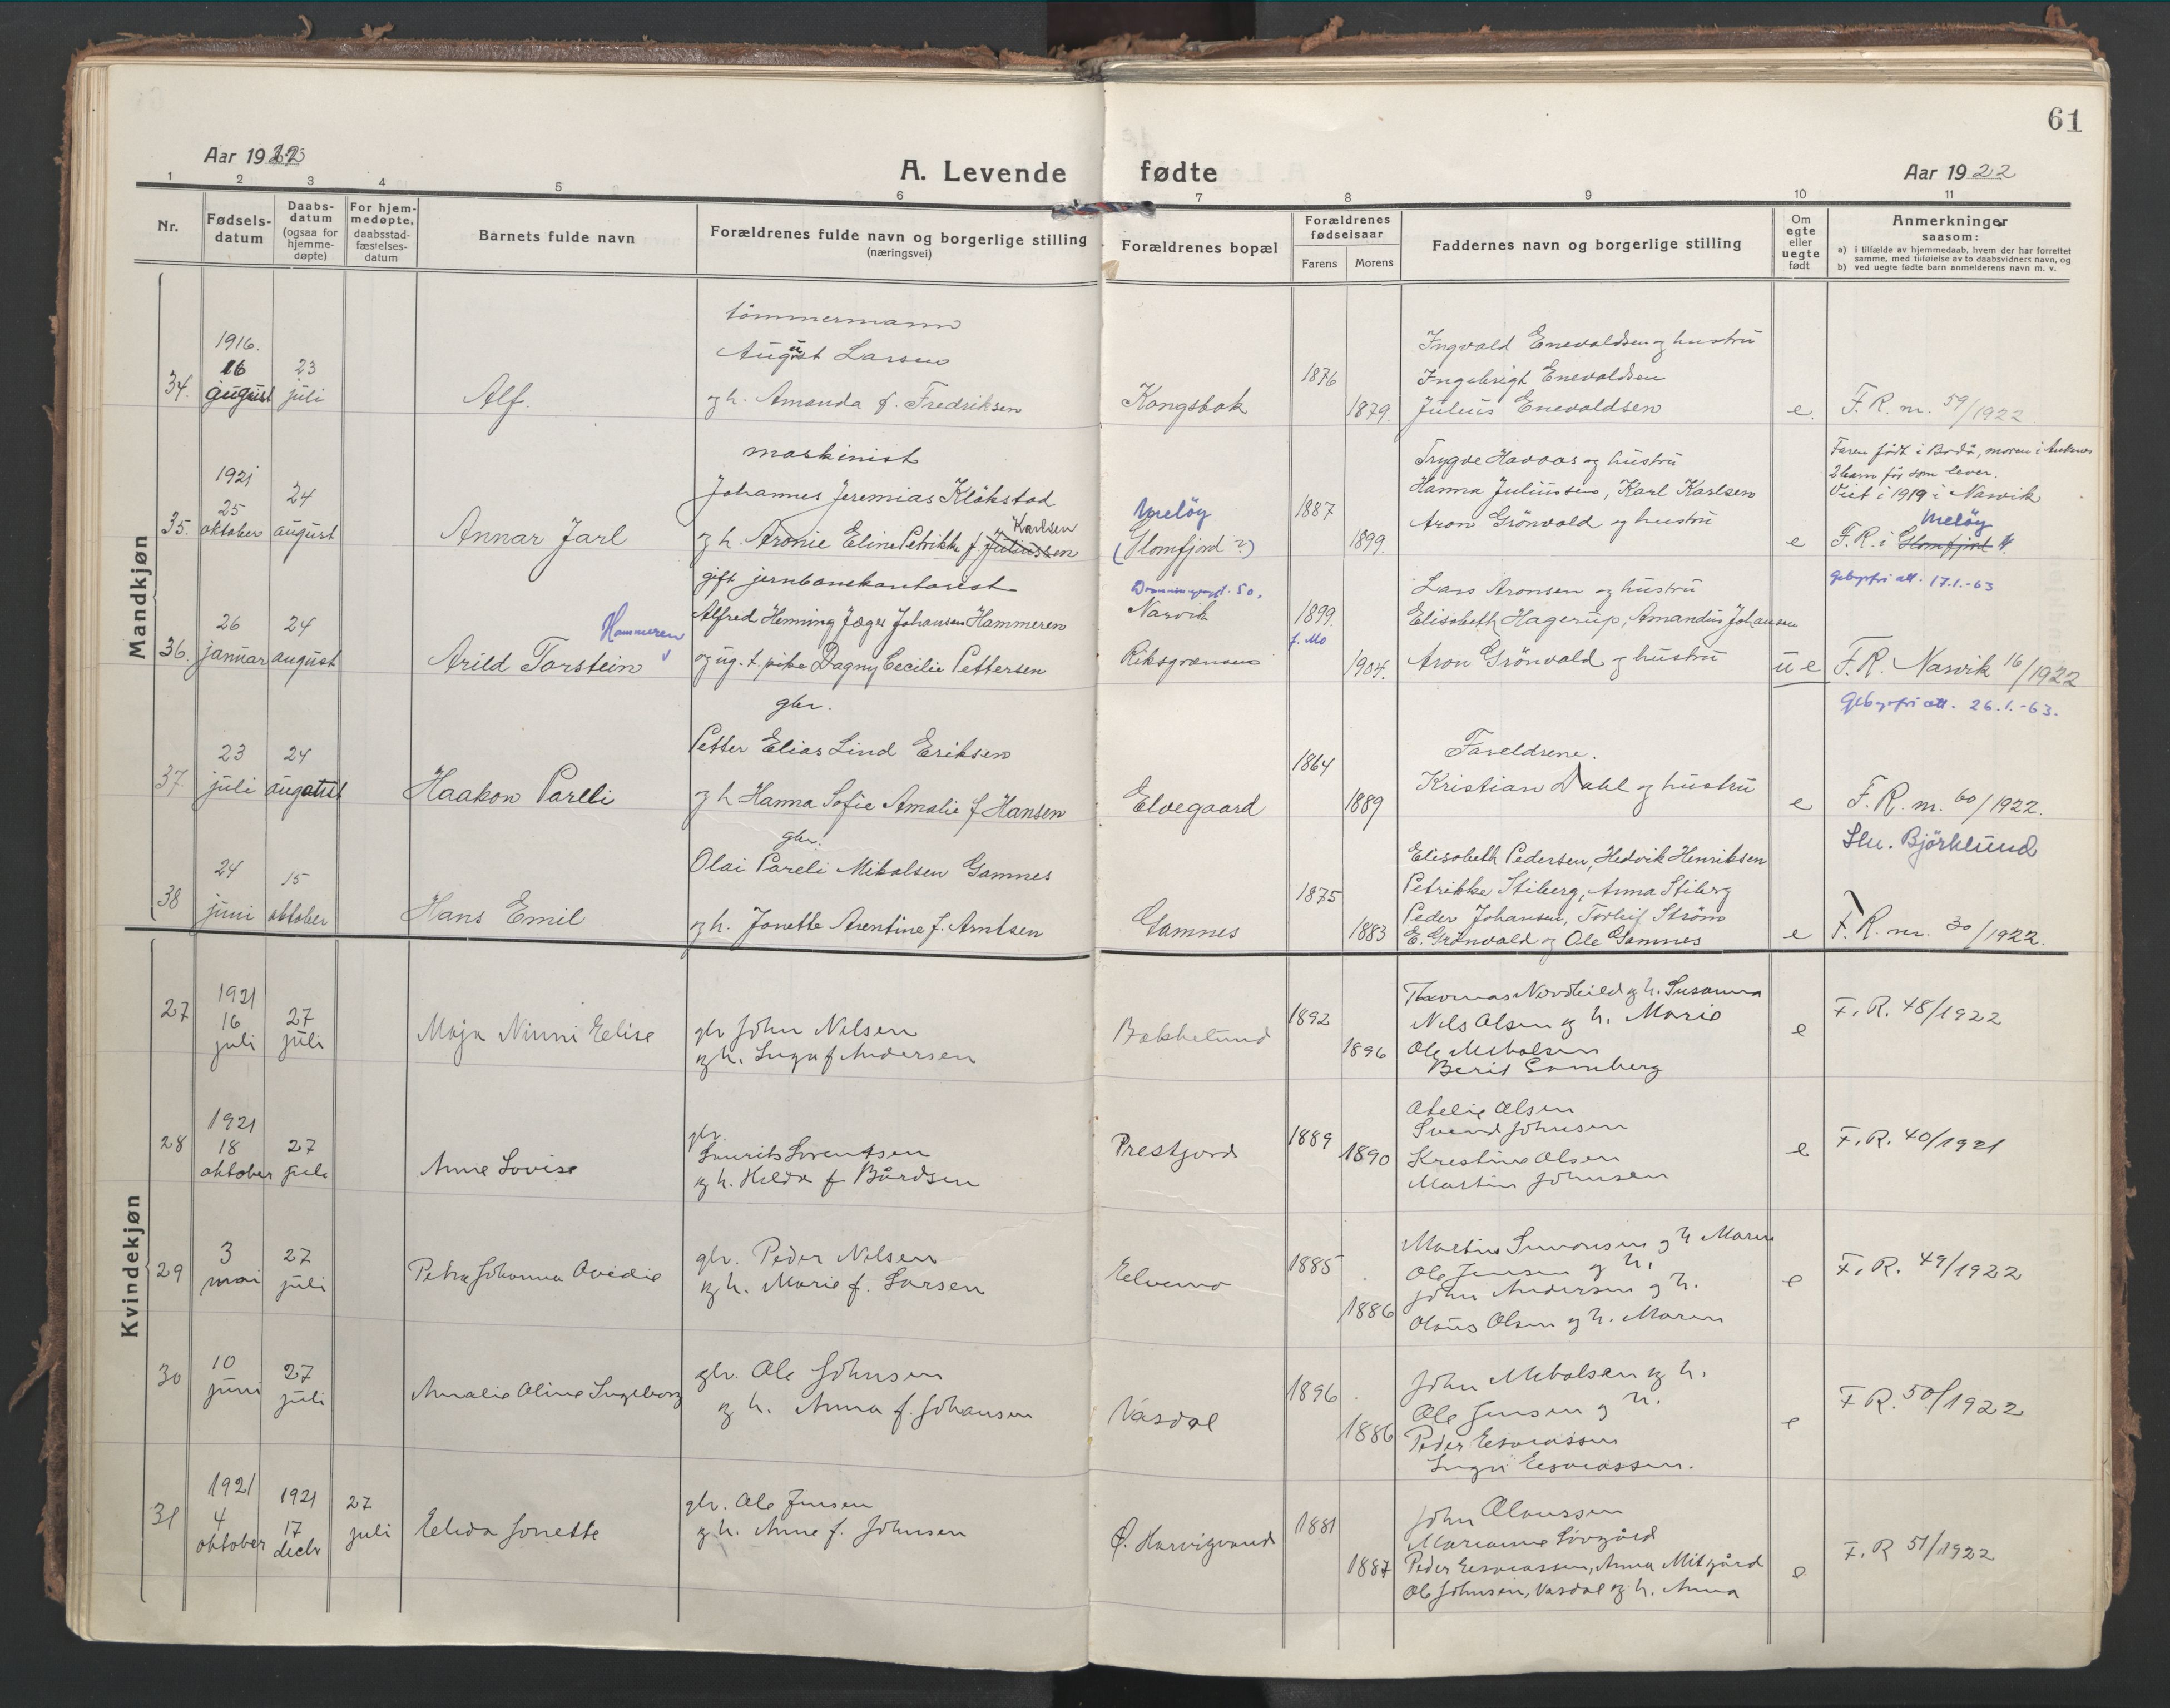 61
Aar 1922
A. Levende fødte
Aar 1922
1 2 3 4 5 6 7 8 9 10 11
Nr.
Fødsels-
datum
Daabs-
datum
(ogsaa for
hjemme-
døpte)
For hjem-
medøpte,
daabsstad-
fæstelses-
datum
Barnets fulde navn
Forældrenes fulde navn og borgerlige stilling
(næringsvei)
Forældrenes bopæl
Forældrenes
fødselsaar
Farens
Morens
Faddernes navn og borgerlige stilling
Om
egte
eller
uegte
født
Anmerkninger
saasom:
a) i tilfælde av hjemmedaab, hvem der har forrettet
samme, med tilføielse av to daabsvidners navn, og
b) ved uegte fødte barn anmelderens navn m. v.
Mandkjøn
34.
1916.
16
august
23
juli
Alf.
tömmermann
August Larsen
og h. Amanda f. Fredriksen
Kongsbak
1876
1879.
Ingvald Enevaldsen og hustru
Ingebrigt Enevaldsen
Julius Enevaldsen
e.
F. R. nr. 59/1922
35.
1921
25
oktober
24
august
Annar Jarl
maskinist
Johannes Jeremias Klåkstad
Karlsen
og h. Aronie Eline Petrikke f. Juliussen
Meløy
(Glomfjord ?)
1887
1899.
Trygve Havaas og hustru
Hanna Juliussen, Karl Karlsen
Aron Grönvald og hustru
e
Faren født i Bodø, moren i Ankenes
2 barn før som lever.
Viet i 1919 i Narvik
Meløy
F. R. i Glomfjord
Gebyrfri att. 17.1.-63
36.
26
januar
24
august
Hammeren
Arild Torstein
gift jernbanekontorist
Alfred Henning Jæger Johansen Hammeren
og ug. t. pike Dagny Cecilie Pettersen
Narvik
Riksgrænsen
1899.
f. Mo
1904.
Lars Aronsen og hustru
Elisabeth Hagerup, Amandus Johansen
Aron Grönvald og hustru
u e
F. R. Narvik 16/1922
Gebyrfri att. 26.1.-63.
37.
23
juli
24
august
Haakon Parelli
gbr.
Petter Elias Lind Eriksen
og h Hanna Sofie Amalie f Hansen
Elvegaard
1864
1889
Foreldrene.
Kristian Dahl og hustru
e
F. R. nr. 60/1922.
Slu. Björklund
38
24
juni
15
oktober
Hans Emil
gbr.
Olai Pareli Mikalsen Gamnes
og h. Jonette Arentine f. Arntsen
Gamnes
1875
1883
Elisabeth Pedersen, Hedvik Henriksen
Petrikke Stiberg, Anna Stiberg
Peder Johansen, Torleif Ström
E. Grönvald og Ole Gamnes
e
F. R. nr. 30/1922.
Kvindekjøn
27
1921
16
juli
27
juli
Maja Ninni Elise
gbr John Nilsen
og h. Inga f Andersen
Bakkelund
1892
1896
Thomas Nordkild og h. Susanna
Nils Olsen og h. Marie
Ole Mikalsen
Berit
e
F. R. 48/1922
28
1921
18
oktober
27
juli
Anne Lovise
gbr.
Laurits Lorentsen
og h. Hilda f Bårdsen
Prestjord
1889
1890
Olsen
Svend Johnsen
Kristine Olsen
Martin Johnsen
e
F. R. 40/1921
29
3
mai
27
juli
Petra Johanna Ovidie
gbr. Peder Nilsen
og h. Marie f. Larsen
Elvemo
1885
1886
Martin Simonsen og h Maren
Ole Jensen og h.
John Andersen og h.
Olaus Olsen og h. Maren
e
F. R. 49/1922
30
10
juni
27
juli
Amalie Oline Ingeborg
gbr. Ole Johnsen
og h. Anna f. Johansen
Vasdal
1896
1886
John Mikalsen og h.
Ole Jensen og h.
Peder Esaiassen
Inga Esaiassen.
e
F R. 50/1922
31
1921
4
oktober
1921
17
decbr
27
juli
Elida Jonette
gbr. Ole Jensen
og h. Anne f. Johnsen
Ø. Harvigvand
1881
1887
John Olaussen
Marianne Lövgård
Peder Esaiassen, Anna Mitgård
Ole Johnsen, Vasdal og h. Anna
e
F. R 51/1922